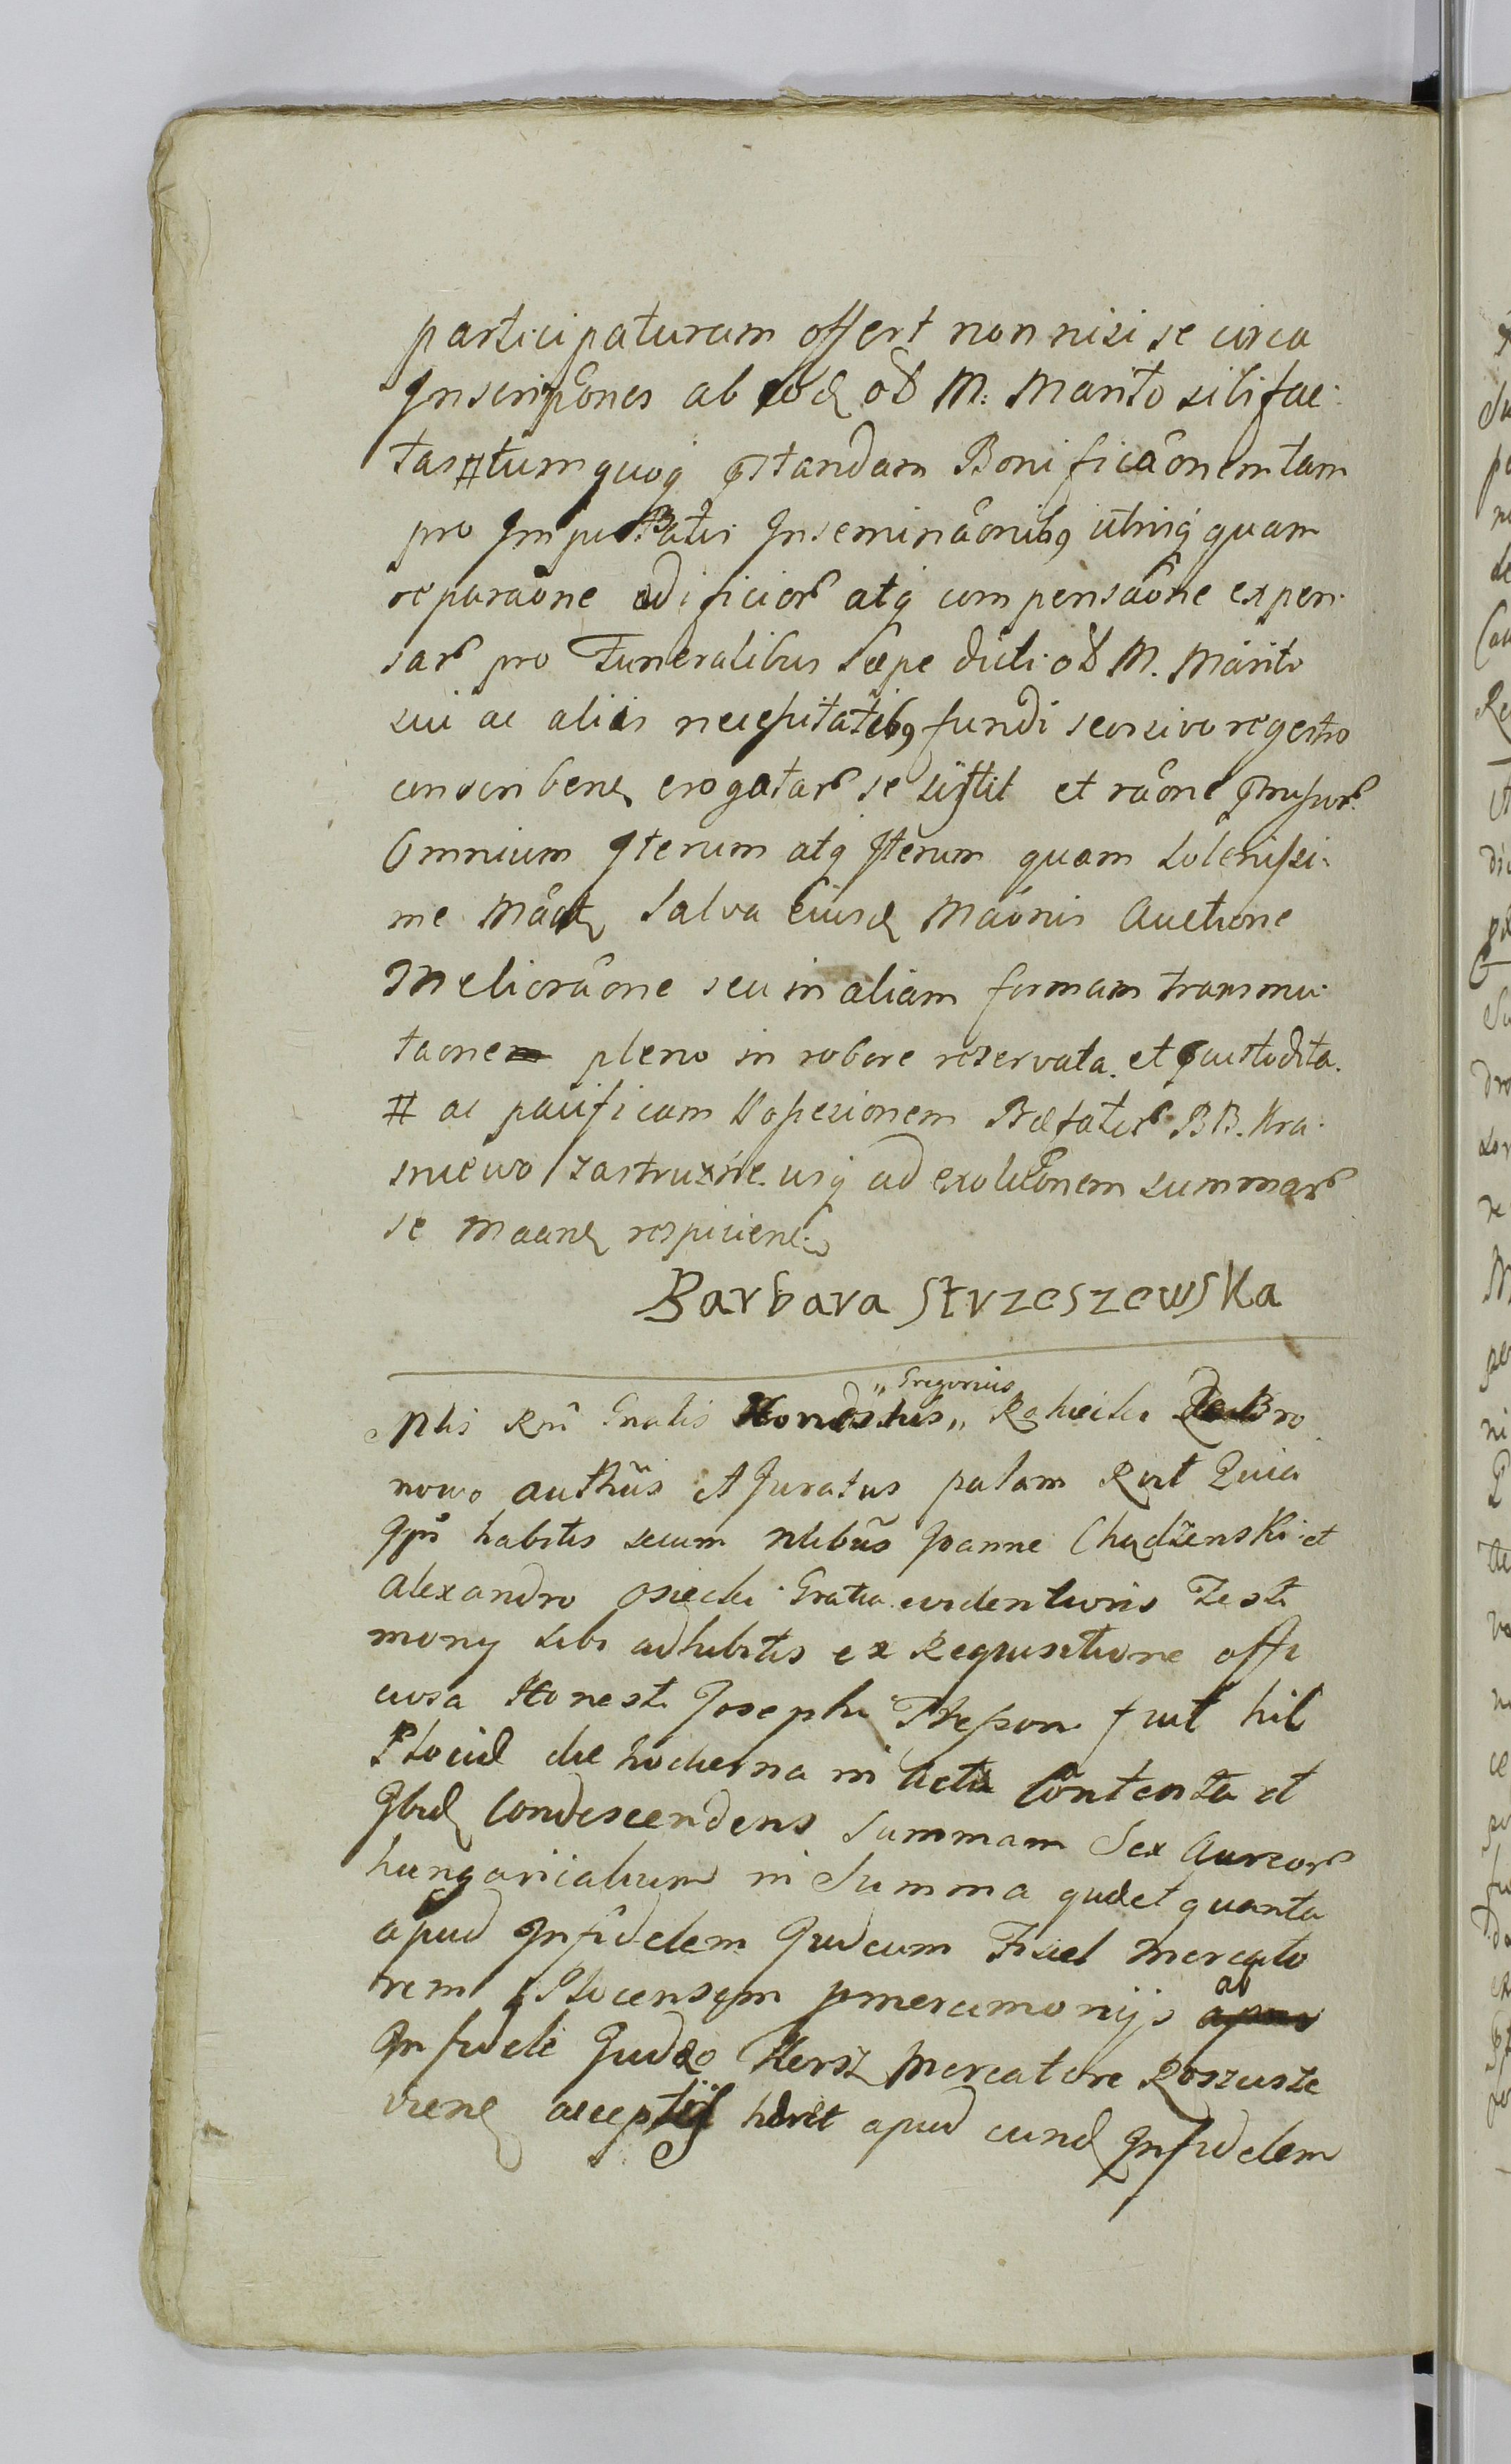 participaturam offert non nisi se circa
Inscripônes ab eod ôd M. Marito sibi fac:
tas # tum quoq pstandam Bonificâonem tam
pro Imputatis Inseminâonibq utriq quam
reparaône ædificior atq compensaône expen:
sar pro Funeralibus Sæpe dicti ôd M. Marito
sui ac aliis necessitatibq fundi seorsivo regestro
conscriben erogatar se sistit et râone pmissor
Omnium Iterum atq Iterum quam solenissi:
me Mâat Salva Eiusd Maônis Auctione
Meliorâone seu in aliam formam transmu:
taone pleno in robore reservata. et custodita.
# ac pacificam possessionem Bd fater BB. Kra:
sniewo / zastruzne. usq ad exolûonem summar
se Maand respicien
Barbara Strzeszewska
Ptis Rni Gnalis Honestus „Gregorius„ Bro
nowo authus A Juratus palam Rcit Quia
Ipse habitis secum Nlibus Joanne Chądzenski et
Alexandro Osiecki Gratia evidentioris Testi
mony sibi adhibitis ex Requisitione offi
ciosa Honesti Josephi fuit hic
Plocii die hodierna in Acta Contenta et
Ibid Condescendens Summam Sex Aureor
hungaricalium in Summa qudet quanta
apud Infidelem Judeum Fisiel Mercato
rem Plocensem pmercimonijs ab
Infideli Judæo Hersz Mercatore Roszusze
vien acceptis hæret apud eund Infidelem